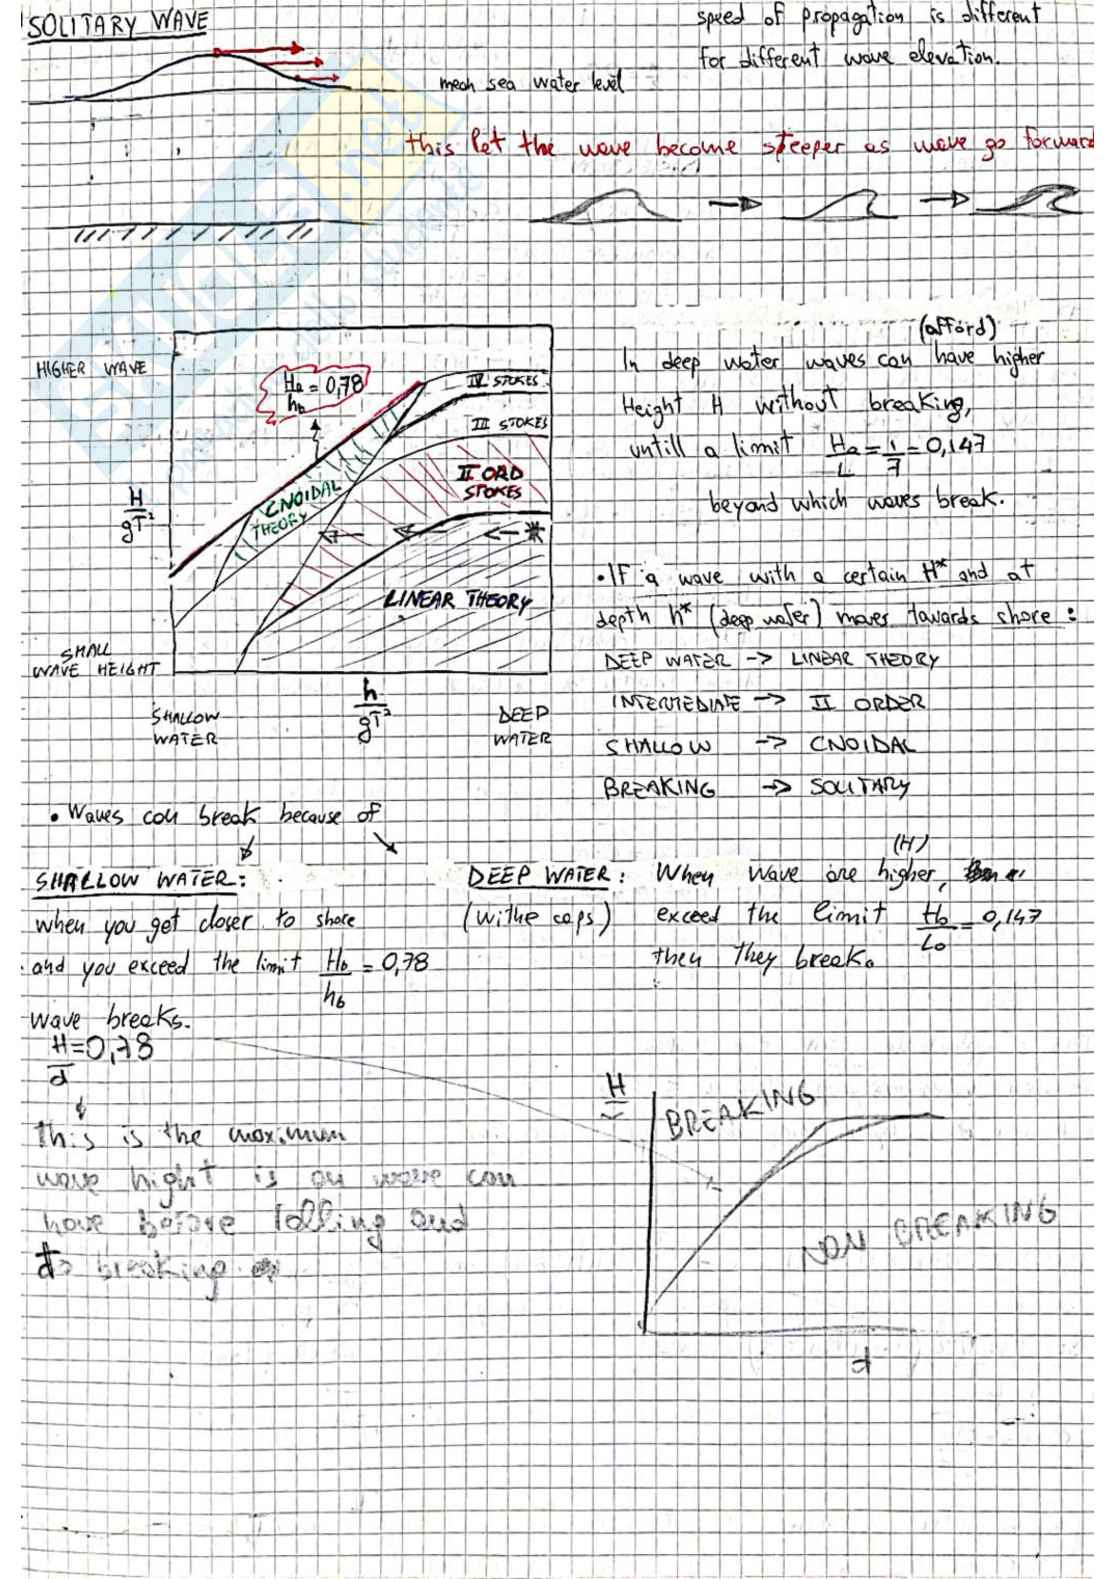 SOLITARY WAVE
speed of propagation is different
for different wave elevation.
mean sea water level
this let the wave become steeper as wave go forward
HIGHER WAVE
H
gT²
SMALL
WAVE HEIGHT
= 0,78
hb
CNOIDAL
THEORY
IV STOKES
III STOKES
II ORD
STOKES
LINEAR THEORY
SHALLOW
WATER
h
gT²
DEEP
WATER
(afford)
In deep water waves can have higher
Height H without breaking,
untill a limit = 1/7 = 0,147
beyond which waves break.
• If a wave with a certain H* and at
depth h* (deep water) moves towards shore :
DEEP WATER -> LINEAR THEORY
INTERMEDIATE -> II ORDER
SHALLOW -> CNOIDAL
BREAKING -> SOLITARY
• Waves can break because of
SHALLOW WATER:
when you get closer to shore
and you exceed the limit Hb/hb = 0,78
wave breaks.
H/d = 0,78
This is the maximum
wave hight is an wave can
have before falling and
to breaking
DEEP WATER: When wave are higher,
(H)
(withe caps) exceed the limit Hb/Lo = 0,147
then they break.
H
BREAKING
NON BREAKING
d